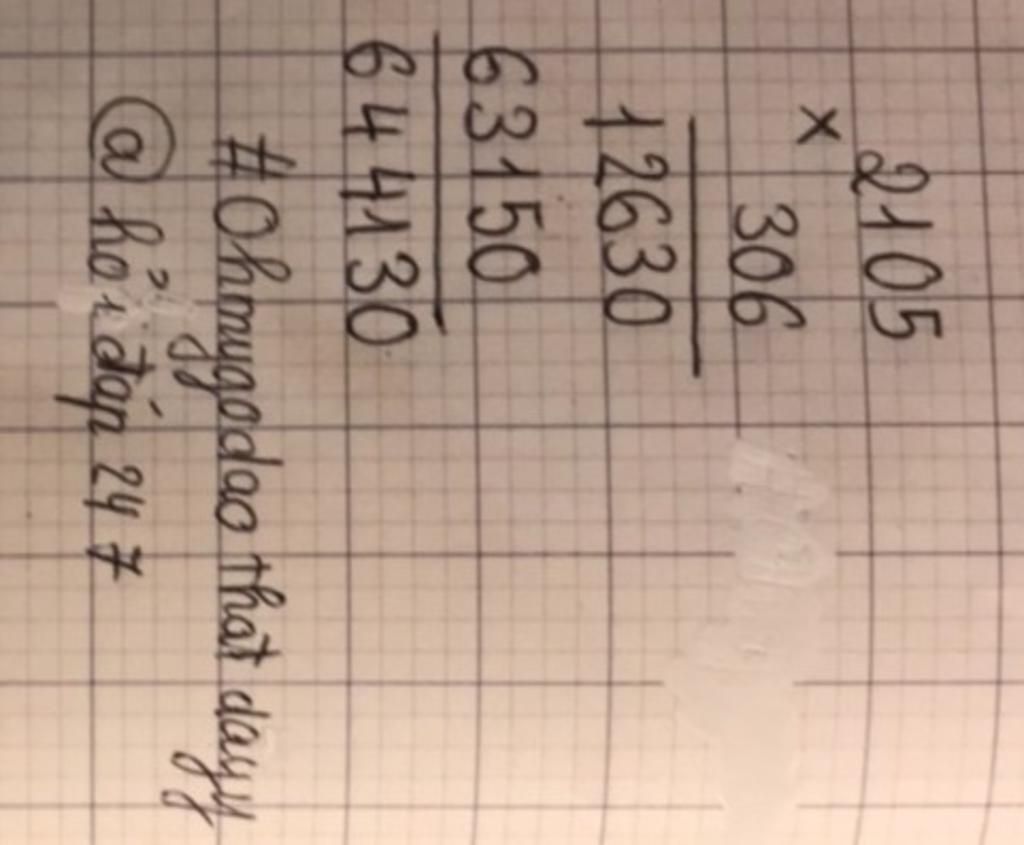 2105
× 306
12630
63150
644130
#Ohmygodao that dayy
@ hỏi đáp 247